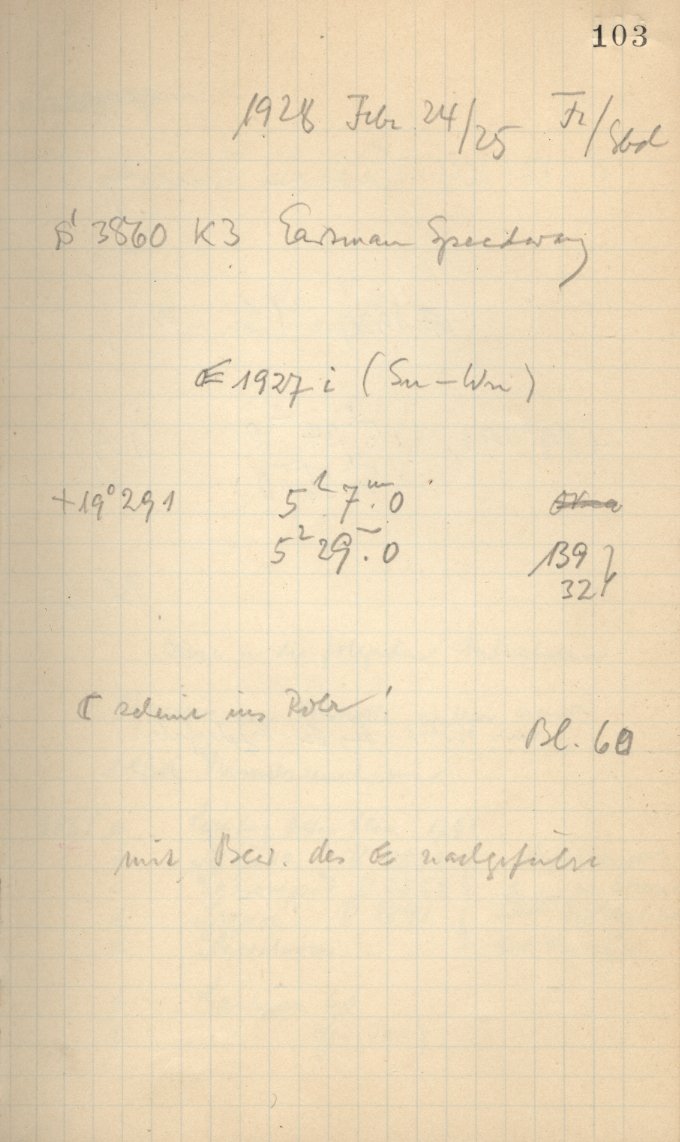 103
1928 Febr 24/25 Fr/Sbd
3860 K3 Eastman Speedway
1927 i (Sw-Wm)
+19° 291 5 7 m. 0
5 29 m. 0 B9
32
scheint ins Rohr!
Bl. 60
mit Bew. des nachgeführt